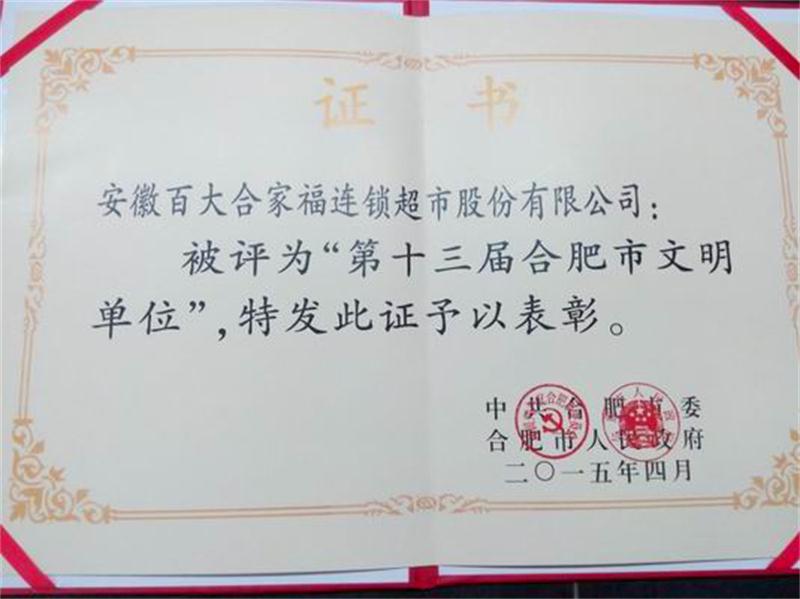 证书
安徽百大合家福连锁超市股份有限公司：
被评为“第十三届合肥市文明
单位”,特发此证予以表彰。
中共合肥市委
合肥市人民政府
二〇一五年四月